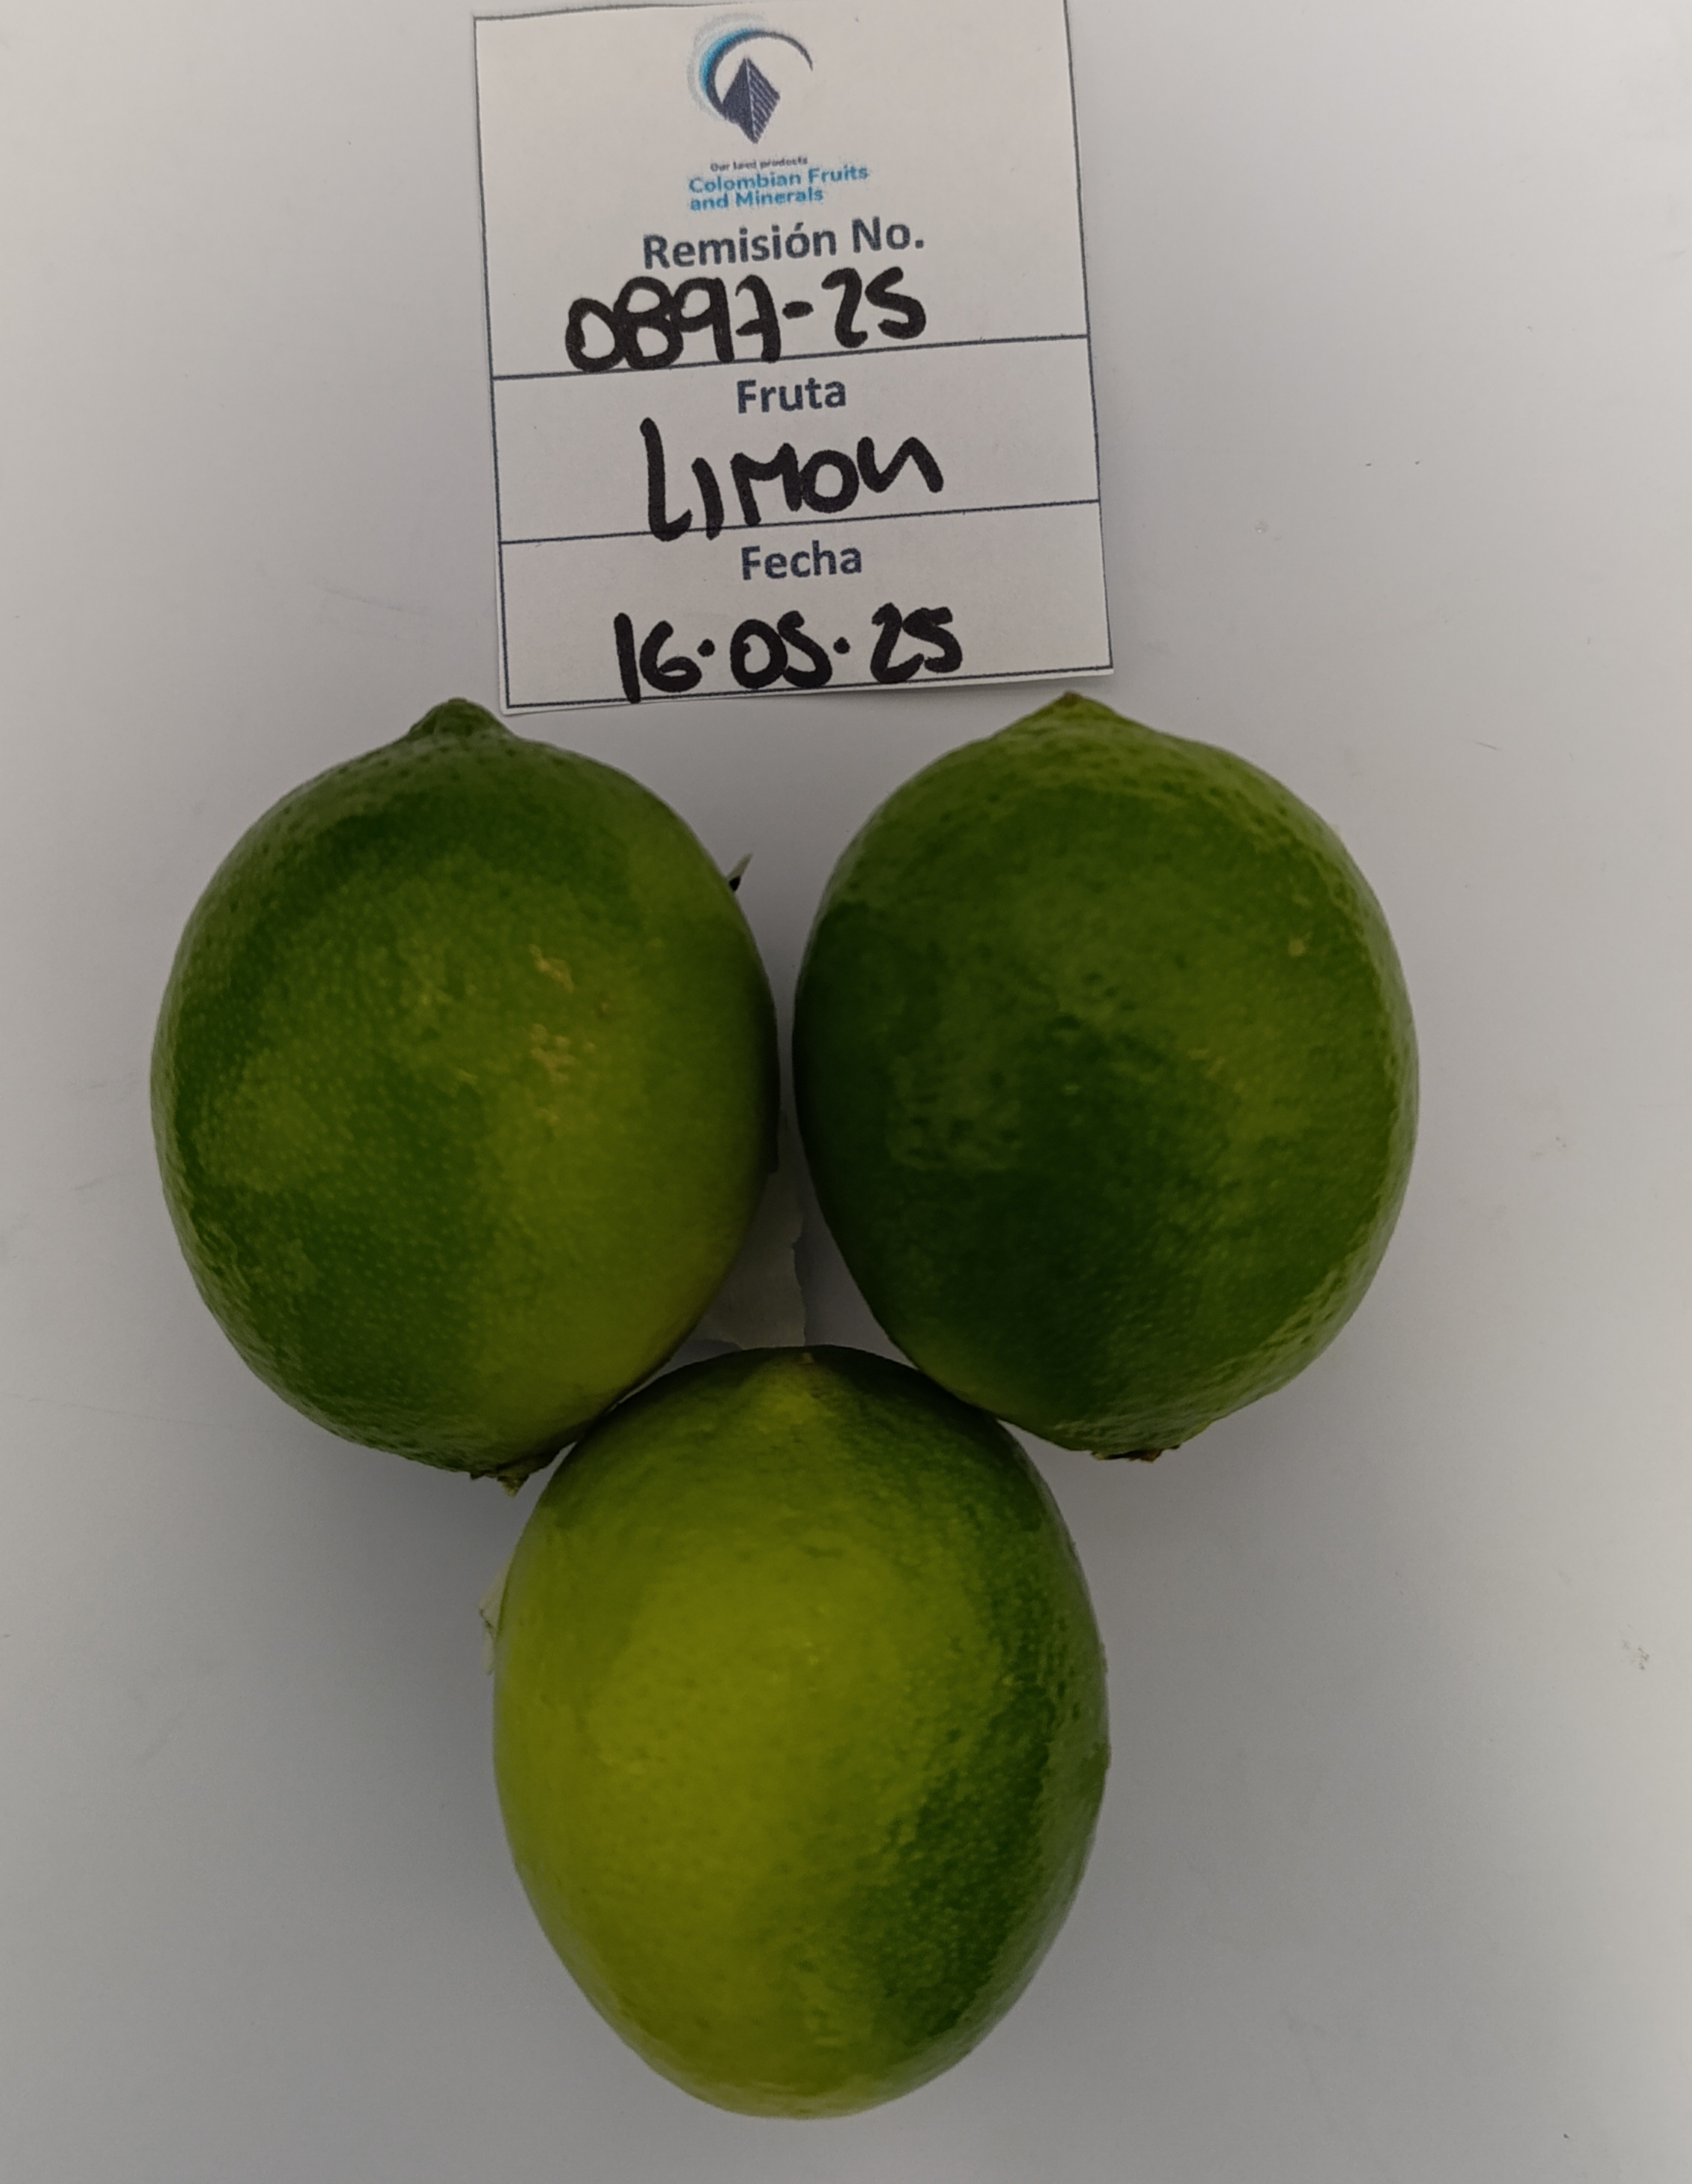 Our land products
Colombian Fruits
and Minerals
Remisión No.
0897-25
Fruta
LIMON
Fecha
16.05.25